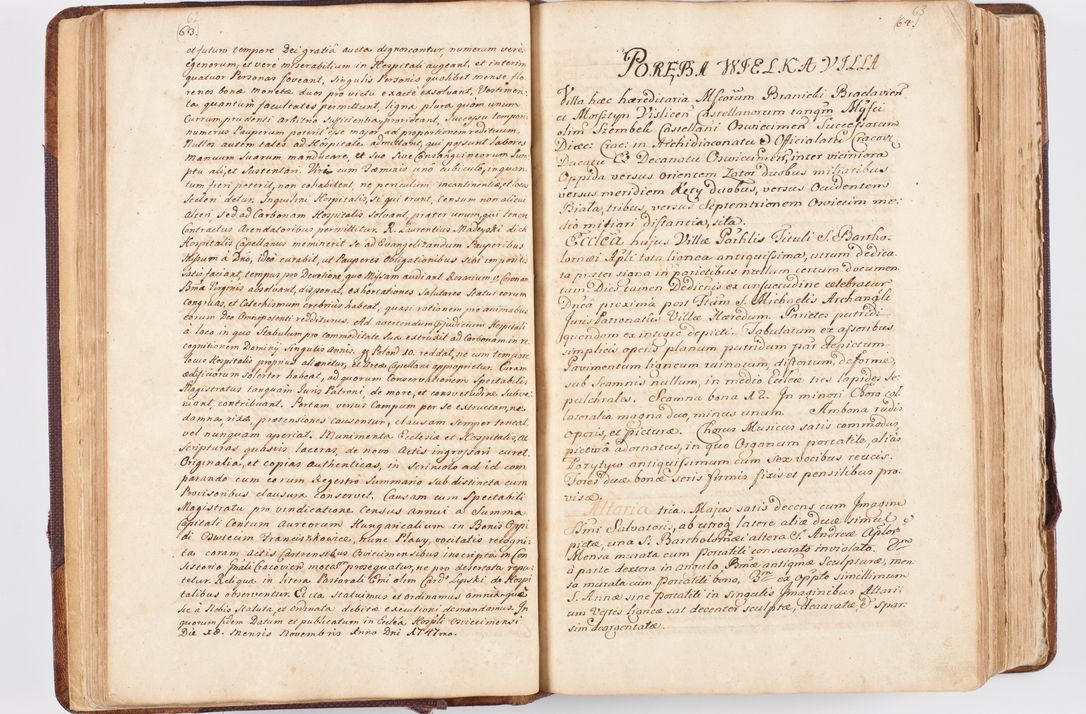 62
(63.)
et futuro tempore Dei gratiâ aucta dignoscantur, numerum verè
egenorum, et verè miserabilium in Hospitali augeant, et interim
quatuor Personas foveant, singulis Personis quolibet mense flo-
renos bonæ monetæ duos pro victu exactè exsolvant, Vestimen-
ta quantum facultates permittunt, ligna plura quàm unum
Currum prudenti arbitrio sufficientia, provideant, Successu temporis
numerus Pauperum poterit esse major ad proportionem redituum.
Nullos autem tales ad Hospitale admittant, qui possunt labores
Manuum Suarum manducare, et Suo Sive Consanguineorum Sum-
ptu ali, et Sustentari. Viri cum Fæminis uno cubiculo, inquan-
tum fieri poterit, non cohabitent, ne periculum incontinentiæ, et loca
Sceleri detur. Inquilini Hospitalis, si qui erunt, Censum non alicui
alteri Sed ad Carbonam Hospitalis Solvant, præter unum, qui tenore
Contractus Arendatoribus permittitur. R. Laurentius Madyski dicti
Hospitalis Capellanus meminerit Se ad Evangelizandum Pauperibus
Missum à Dno, ideò curabit, ut Pauperes Obligationibus Sibi compositis
Satis faciant, tempus pro Devotione, quo Missam audiant Rosarium et Coronam
Bmæ Virginis absolvant, disponat, exhortationes Salutares Statui eorum
congruas, et Catechismum crebriùs habeat, quasi rationem pro animabus
eorum Deo Omnipotenti redditurus. Ad avertendum præjudicium Hospitali
à loco in quo Stabulum pro commoditate Sua extruxit ad Carbonam in re-
cognitionem Dominij Singulis Annis, Polon 10. reddat, ne cum tempore
locus Hospitalis proprius alienetur, et Areæ Capellani approprietur. Curam
ædificiorum Solerter habeat, ad quorum Conservationem Spectabilis
Magistratus tanquam Juris Patroni, de more, et consvetudine Subve-
niant, contribuant. Portam versus Campum per se extructam, ne
damna, rixæ, prætensiones causentur, clausam Semper teneat,
vel nunquam aperiat. Munimenta Ecclesiæ et Hospitalis, et
Scripturas quasvis laceras, de novo Actis ingrossari curet.
Originalia, et copias authenticas, in Scriniolo ad id com-
parando cum eorum Regestro Summario Sub distincta cum
Provisoribus clausura conservet. Causam cum Spectabili
Magistratu pro vindicatione Census Annui a Summa
Capitali Centum Aureorum Hungaricalium in Bonis Oppi-
di Osviecim Franciszkowice, tunc Plawy, vocitatis recogni-
ta coram Actis Castrensibus Osviecimensibus inscripta in Con-
sistorio Gnali Cracovien motam prosequatur, ne pro desertata repu-
tetur. Reliqua in litera Pastorali Emi olim Card. Lipski de Hospi-
talibus observentur. Et ita Statuimus et ordinamus omniaque
Sic à Nobis Statuta, et Ordinata debitæ executioni demandamus. In
quorum fidem Datum et publicatum in Ecclesia Hospli Osviecimensi
Die 28. Mensis Novembris Anno Dni 1747mo.
63
(64.)
PORĘBA WIELKA VILLA
Villa hæc hæreditaria Mscorum Branicki Braclavien
et Morsztyn Vislicen Castellanorum tanqm Msci
olim Szembek Castellani Osviecimen Successorum
Diæc: Crac: in Archidiaconatu & Officialatu Cracov:
Ducatu & Decanatu Osviecimen, inter viciniora
Oppida versus Orientem Zator duobus milliaribus
versus meridiem Kęty duobus, versus Occidentem
Biala, tribus, versus Septemtrionem Osviecim me-
dio milliari distantia, sita.
Ecclea hujus Villæ Parhlis Tituli S. Bartho-
lomæi Apli tota lignea antiquissima, utrum dedica-
ta præter signa in parietibus nullum certum documen-
tum Dies tamen Dedicnis ex consuetudine celebratur
Dncâ proximâ post Ftum S. Michaelis Archangli
Juris Patronatûs Villæ Hæredum. Parietes putridi
quondam ex integro depicti. Tabulatum ex asseribus
simplicis operis planum putridum par depictum
Pavimentum ligneum ruinosum, distortum, deforme,
sub Scamnis nullum, in medio Eccleæ tres lapides se-
pulchrales. Scamna bona 12. In minori Choro col-
lateralia magna duo, minus unum. Ambona rudis
operis, et picturæ. Chorus Musicus satis commodus,
pictura adornatus, in quo Organum portatile, aliàs
Pozytyw antiquissimum cum sex vocibus raucis.
Fores duæ bonæ seris firmis fixis et pensilibus pro-
visæ.
Altaria tria. Majus satis decens cum Imagine
Ssmi Salvatoris, ab utroq latere aliæ duæ simul
pictæ, una S. Bartholomæi altera S. Andreæ Aplor
Mensa murata cum Portatili consecrato inviolato. 2m
à parte dextera in angulo, Bmæ antiquæ Sculpturæ, men-
sa murata cum Portatili bono, 3m ex oppto simillimum
S. Annæ sine Portatili in singulis Imaginibus Altari-
um Vestes ligneæ sat decenter sculptæ, deauratæ, & spar-
sim deargentatæ.